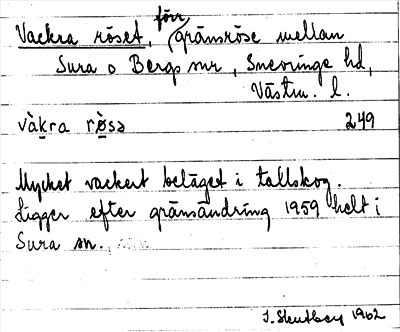 Vackra röset, förr gränsröse mellan
Sura o Bergs snr, Snevringe hd,
Västm. l.
vàkra rǿsə 249
Mycket vackert beläget i tallskog.
Ligger efter gränsändring 1959 helt i
Sura sn.
1962